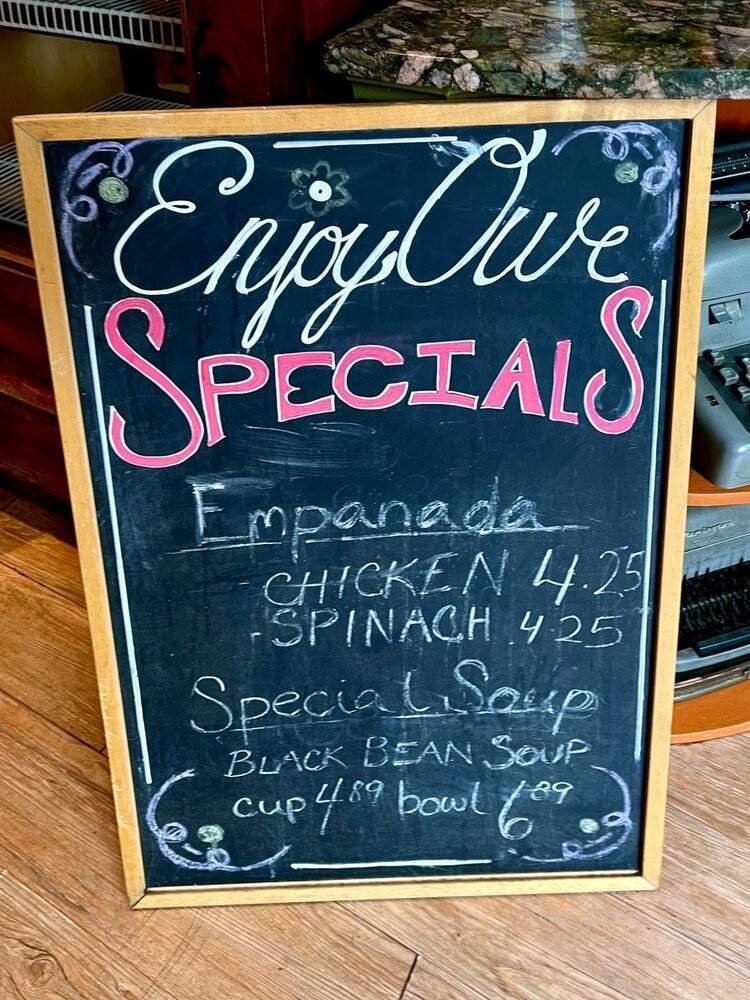 Enjoy Our
SPECIALS
Empanada
CHICKEN 4.25
SPINACH 4.25
Special Soup
BLACK BEAN SOUP
cup 4.89 bowl 6.89